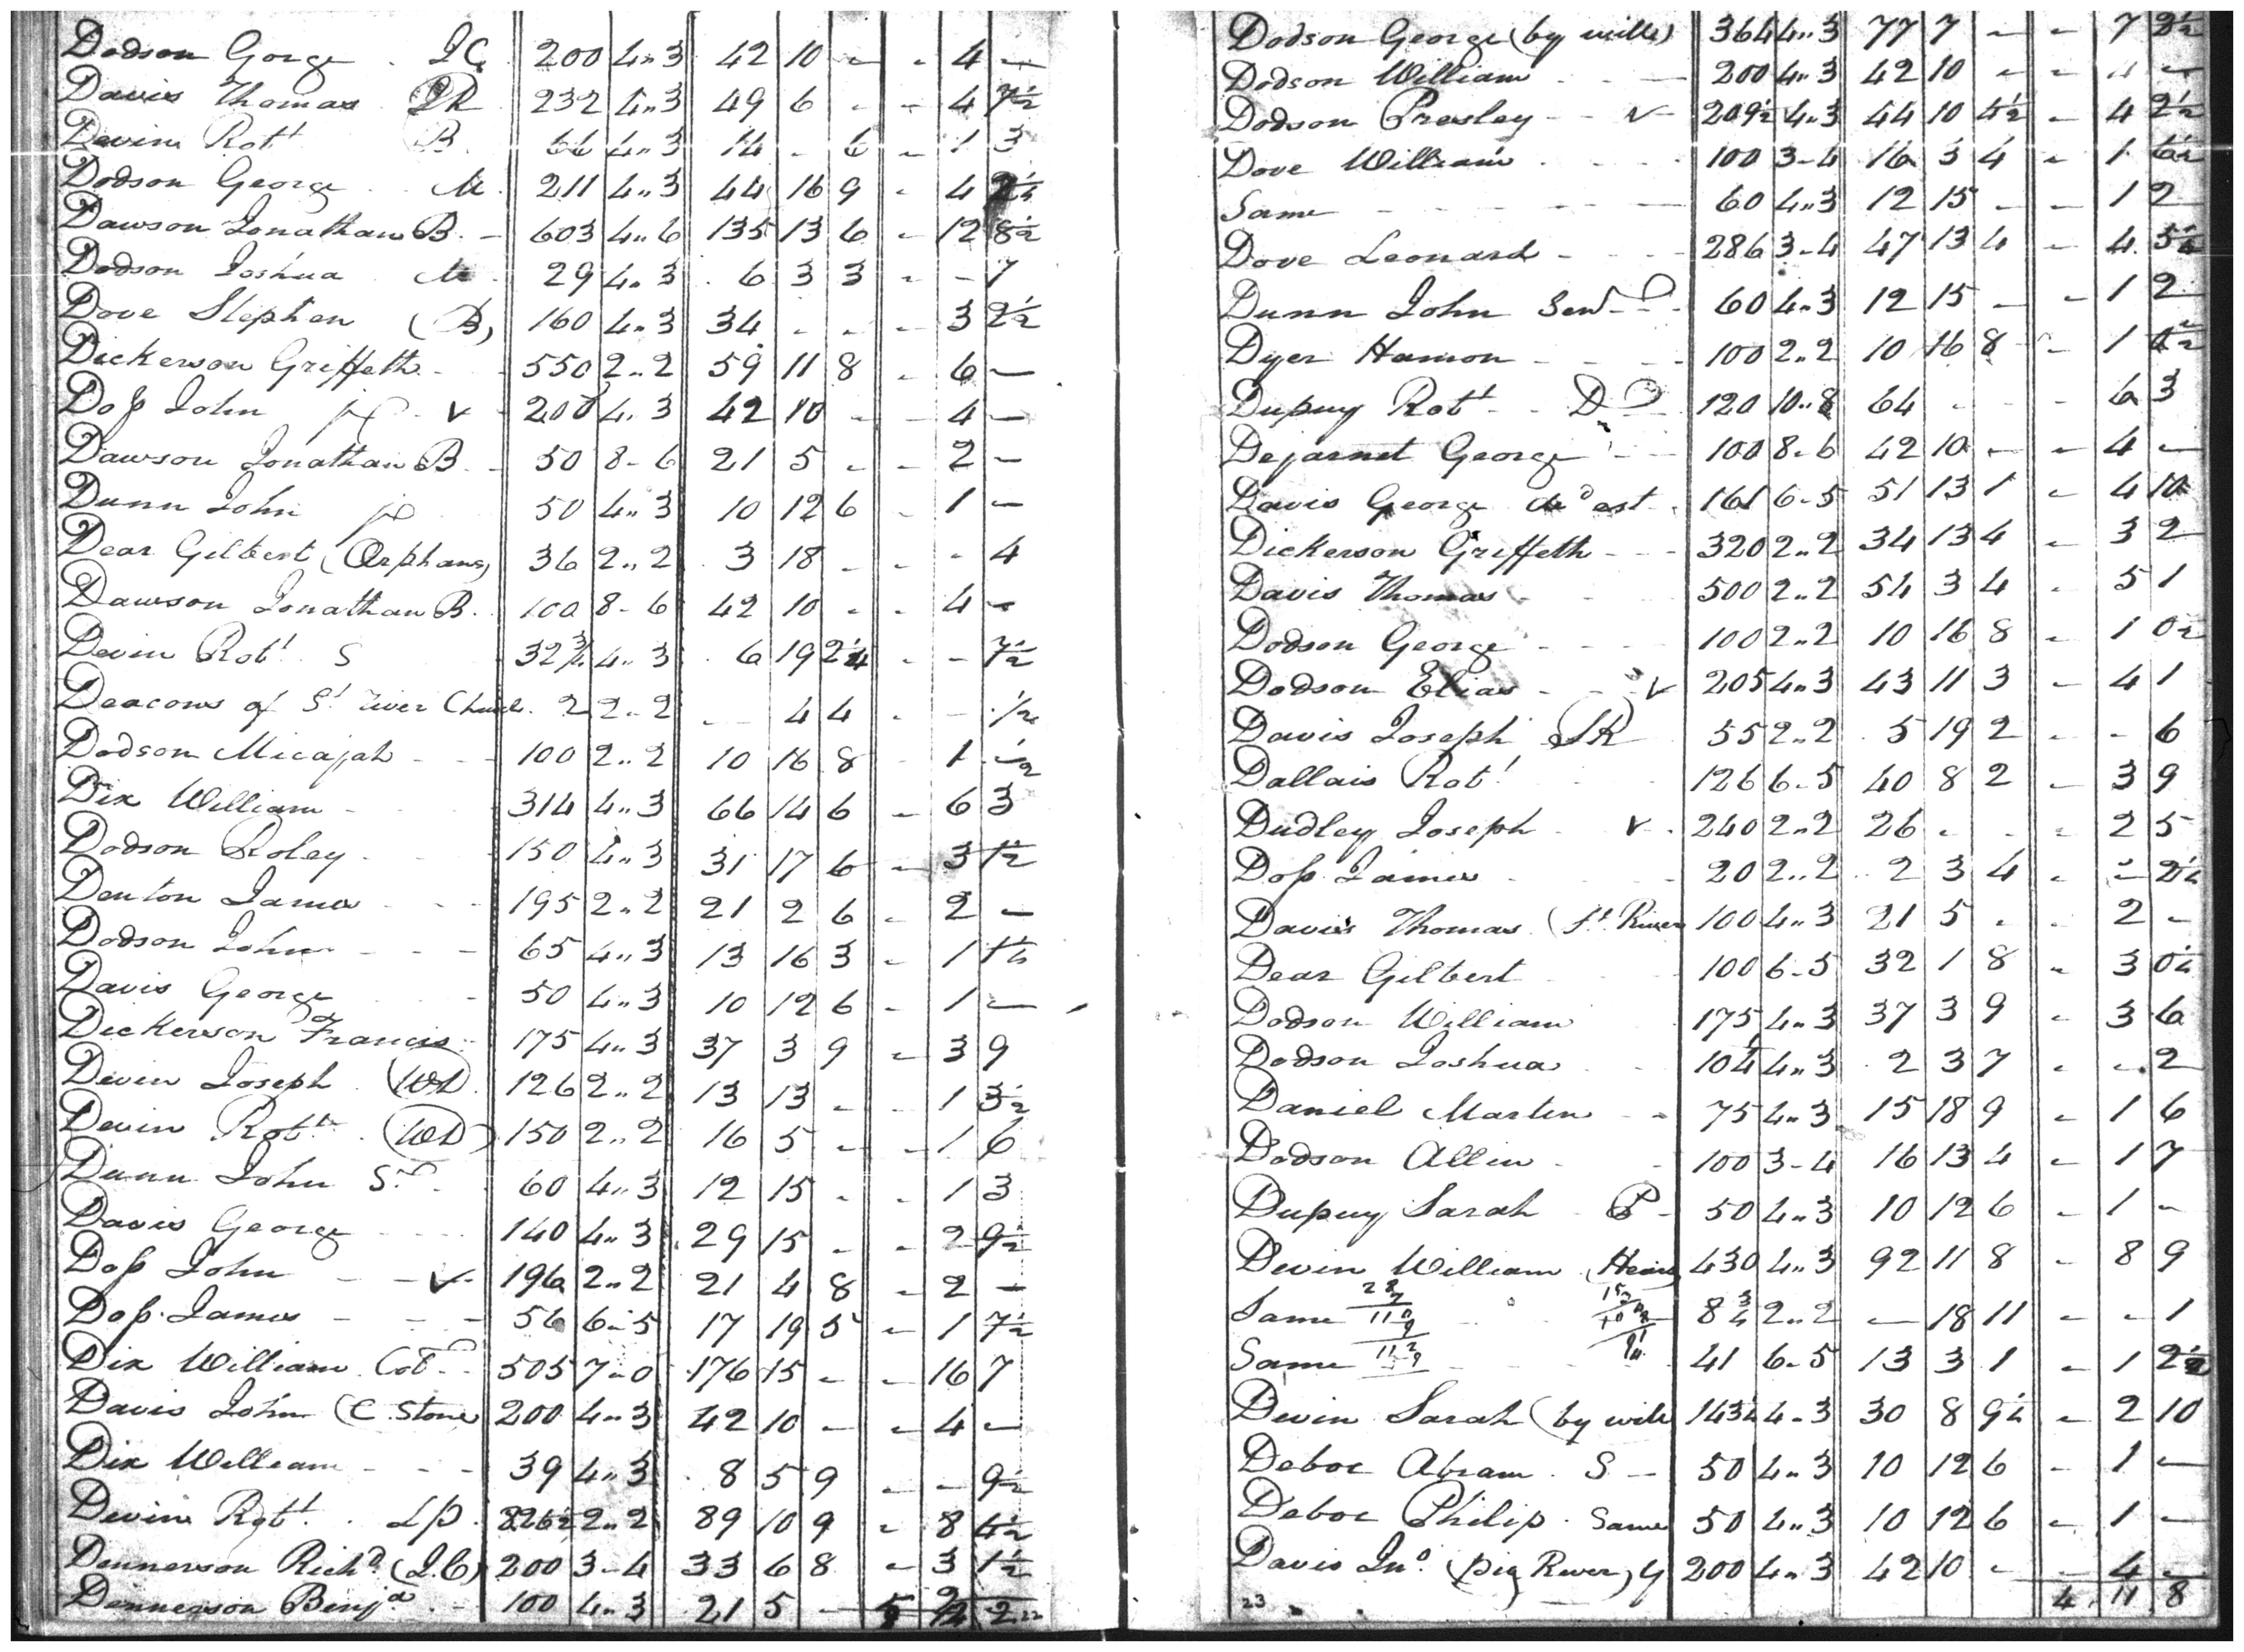 Dodson Gorge . J C. 200 4"3 42 10 - - 4 -
Davis Thomas J R 232 4"3 49 6 - - 4 7½
Devin Robt B 66 4"3 14 - 6 - 1 3
Dodson George M 211 4"3 44 16 9 - 4 2½
Dawson Jonathan B. - 603 4"6 135 13 6 - 12 8½
Dodson Joshua M 29 4"3 6 3 3 - - 7
Dove Stephen (B) 160 4"3 34 - - - 3 2½
Dickerson Griffeth 550 2"2 59 11 8 - 6 -
Doss John v 200 4"3 42 10 - - 4 -
Dawson Jonathan B - 50 8-6 21 5 - - 2 -
Dunn John 50 4"3 10 12 6 - 1 -
Dear Gilbert (Orphans) 36 2"2 3 18 - - - 4
Dawson Jonathan B. 100 8-6 42 10 - - 4 -
Devin Robt S 32¾ 4"3 6 19 2¼ - - 7½
Deacons of St river Church 2 2-2 - 4 4 - - ½
Dodson Micajah - - 100 2"2 10 16 8 - 1 -½
Dix William - 314 4"3 66 14 6 - 6 3
Dodson Roley 150 4"3 31 17 6 - 3 1½
Denton James - - 195 2"2 21 2 6 - 2 -
Dodson John - - - 65 4"3 13 16 3 - 1 1½
Davis George - 50 4"3 10 12 6 - 1 -
Dickerson Francis 175 4"3 37 3 9 - 3 9
Devin Joseph (WD) 126 2"2 13 13 - - 1 3½
Devin Robt (WD) 150 2"2 16 5 - - 1 6
Dunn John Sr 60 4"3 12 15 - - 1 3
Davis George - - 140 4"3 29 15 - - 2 9½
Doss John - - v 196 2"2 21 4 8 - 2 -
Doss James - - - 56 6-5 17 19 5 - 1 7½
Dix William Col - 505 7-0 176 15 - - 16 7
Davis John (C. Stone 200 4"3 42 10 - - 4 -
Dix William - - - 39 4"3 8 5 9 - - 9½
Devin Robt. LP. 826½ 2"2 89 10 9 - 8 4½
Dennerson Richd (J.C) 200 3-4 33 6 8 - 3 1½
Dennerson Benja - 100 4"3 21 5 -
22
Dodson George (by mills) 364 4"3 77 7 - - 7 2½
Dodson William - - 200 4"3 42 10 - - 4 -
Dodson Presley - - v 209½ 4"3 44 10 4½ - 4 2½
Dove William - - - 100 3-4 16 3 4 - 1 6½
Same - - - - - 60 4"3 12 15 - - 1 2
Dove Leonard - - - 286 3-4 47 13 4 - 4 5½
Dunn John Senr - 60 4"3 12 15 - - 1 2
Dyer Hamon - - - 100 2"2 10 16 8 - 1 0½
Dupuy Robt - D 120 10"8 64 - - - 6 3
Dejarnet George - - 100 8-6 42 10 - - 4 -
Davis George decd est. 161 6-5 51 13 1 - 4 10
Dickerson Griffeth - - 320 2"2 34 13 4 - 3 2
Davis Thomas - - 500 2"2 54 3 4 - 5 1
Dodson George - - - 100 2"2 10 16 8 - 1 0½
Dodson Elias - - v 205 4"3 43 11 3 - 4 1
Davis Joseph SR 55 2"2 5 19 2 - - 6
Dallais Robt 126 6-5 40 8 2 - 3 9
Dudley Joseph v 240 2"2 26 - - - 2 5
Doss James - - 20 2"2 2 3 4 - - 2½
Davis Thomas (St. River 100 4"3 21 5 - - 2 -
Dear Gilbert - - 100 6-5 32 1 8 - 3 0½
Dodson William 175 4"3 37 3 9 - 3 6
Dodson Joshua 10¼ 4"3 2 3 7 - - 2
Daniel Martin - - 75 4"3 15 18 9 - 1 6
Dodson Allin - - 100 3-4 16 13 4 - 1 7
Dupuy Sarah - P - 50 4"3 10 12 6 - 1 -
Devin William (Heirs) 430 4"3 92 11 8 - 8 9
Same 8¾ 2"2 - 18 11 - - 1
Same 41 6-5 13 3 1 - 1 2½
Devin Sarah (by will 143½ 4-3 30 8 9½ - 2 10
Deboe Abram. S - 50 4"3 10 12 6 - 1 -
Deboe Philip. Same 50 4"3 10 12 6 - 1 -
Davis Jno. (Pig River) G 200 4"3 42 10 - - 4 -
23 4 11 8